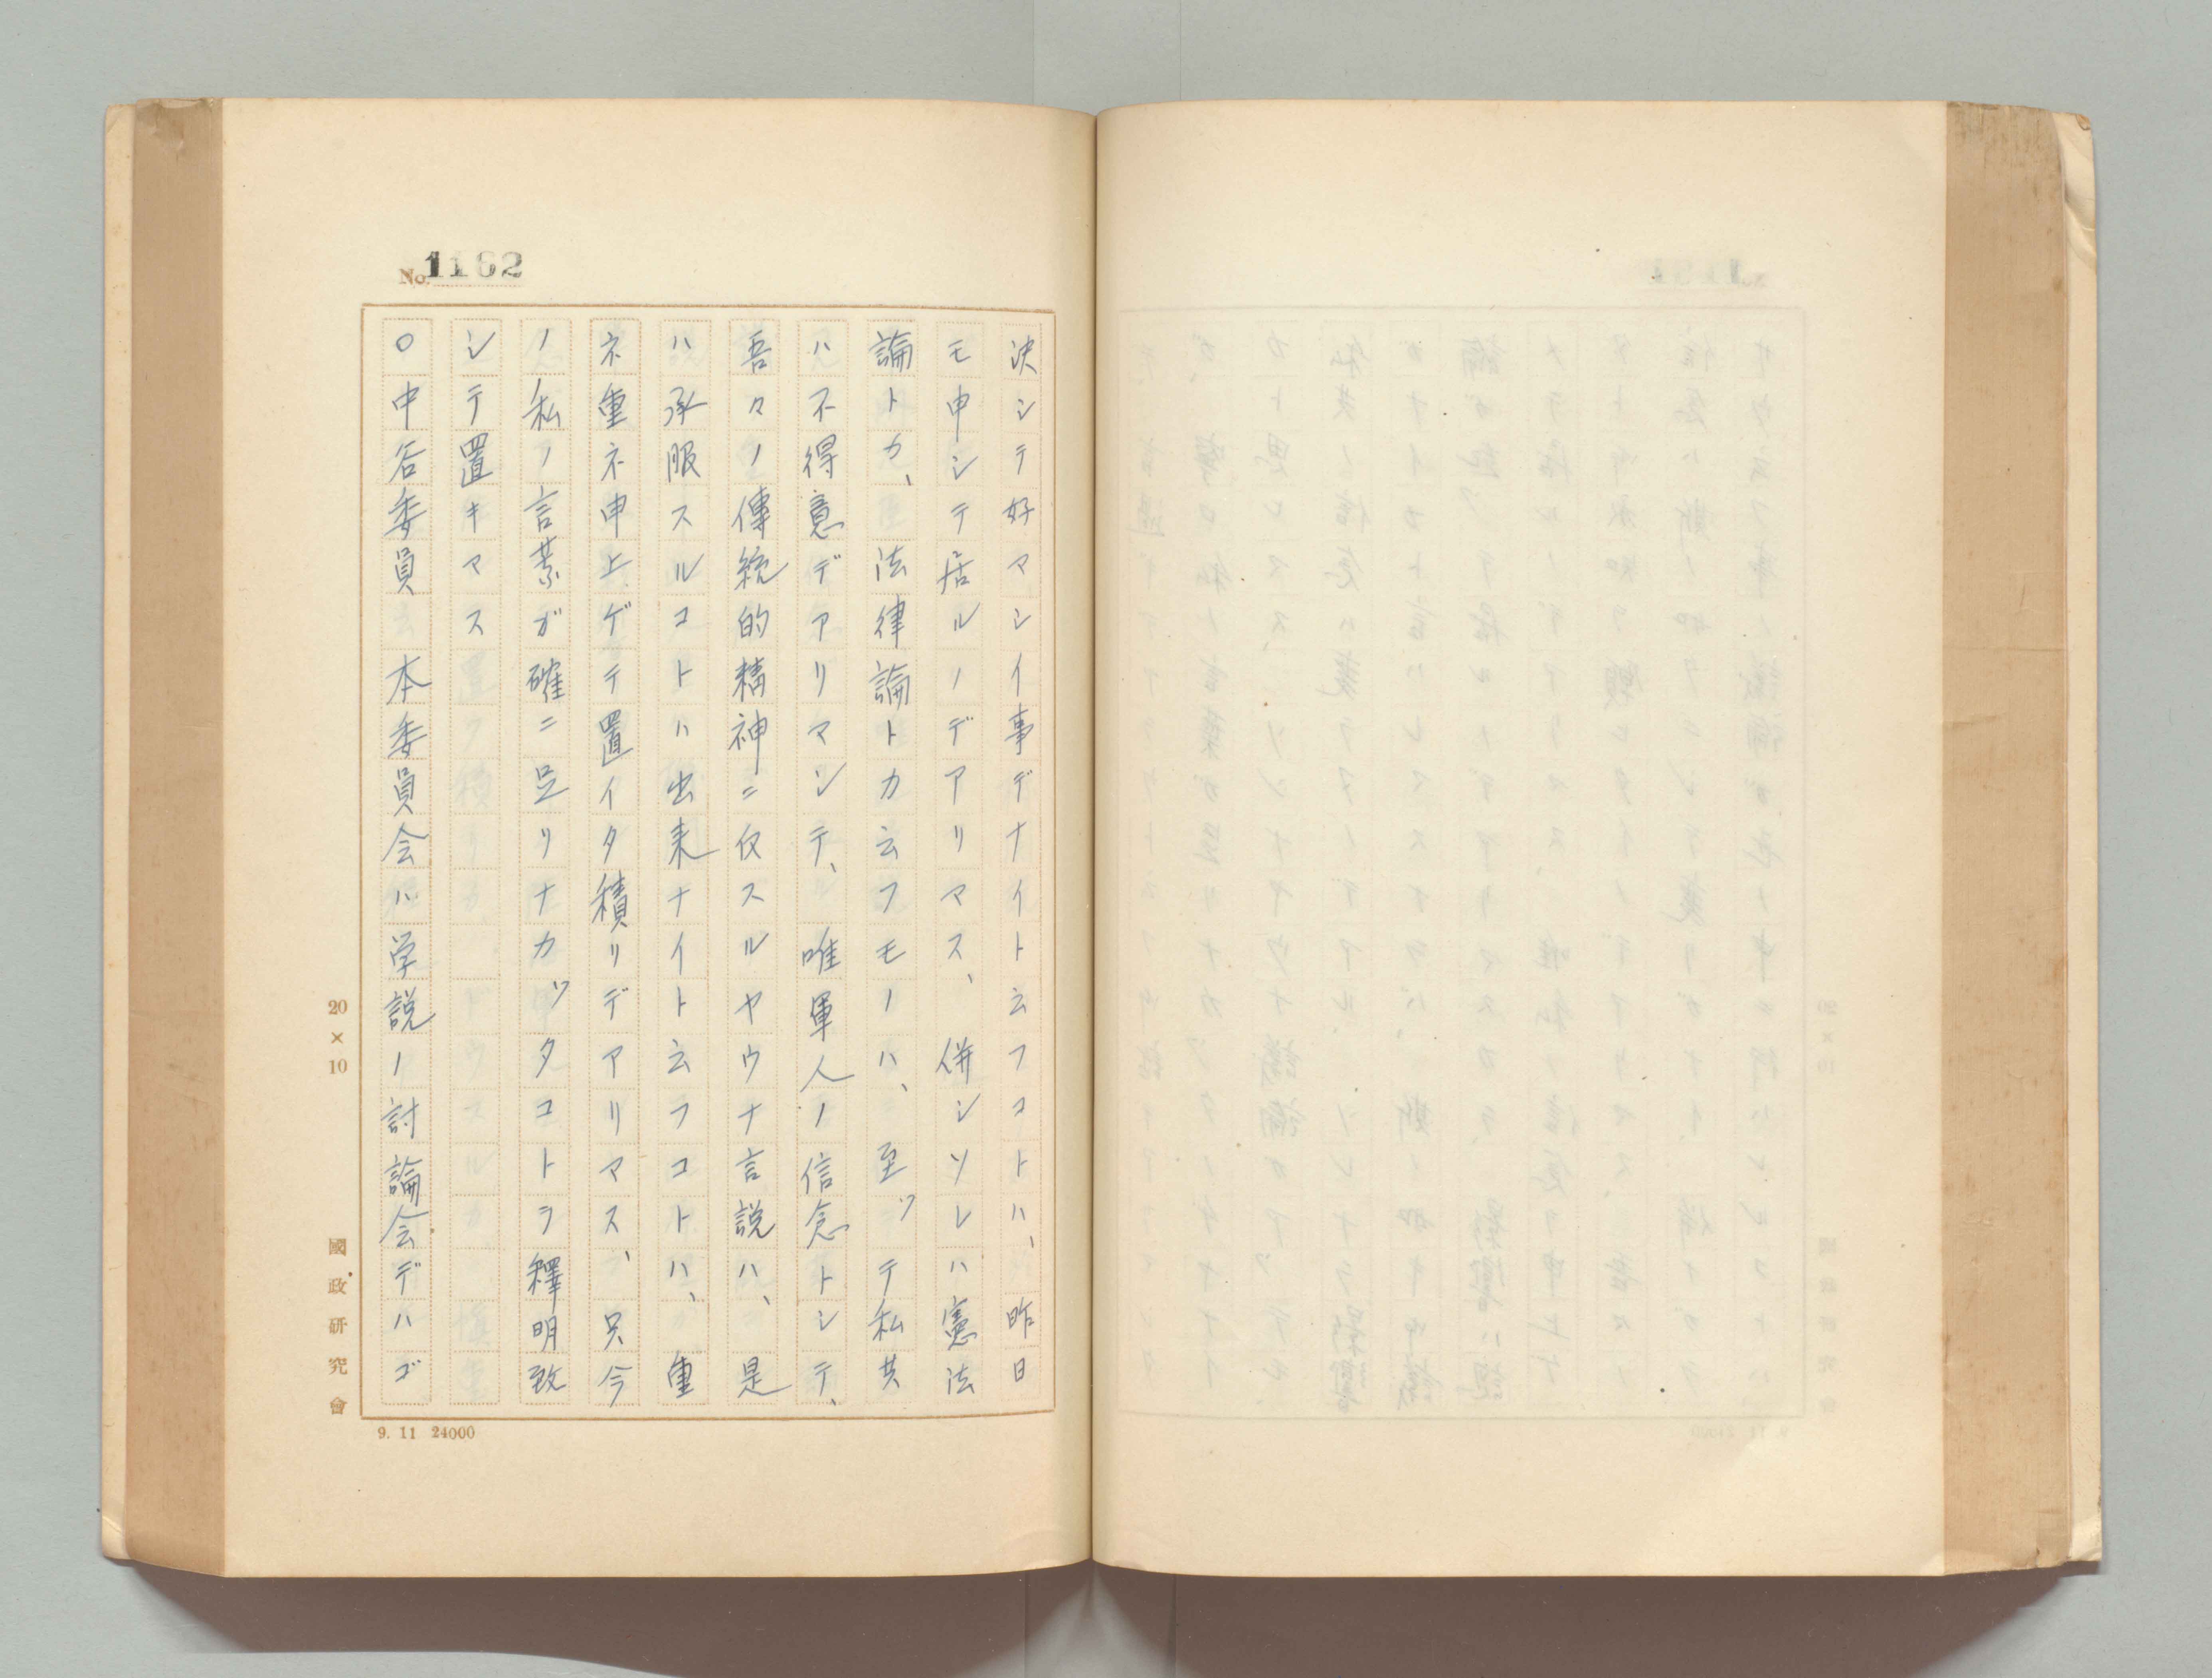 No. 1162
決シテ好マシイ事デナイト云フコトハ、昨日
モ申シテ居ルノデアリマス、併シソレハ憲法
論トカ、法律論トカ云フモノハ、至ッテ私共
ハ不得意デアリマシテ、唯軍人ノ信念トシテ、
吾々ノ傳統的精神ニ仅スルヤウナ言説ハ、是
ハ承服スルコトハ出来ナイト云フコトハ、重
ネ重ネ申上ゲテ置イタ積リデアリマス、只今
ノ私ノ言葉ガ確ニ足リナカッタコトヲ釋明致
シテ置キマス
○中谷委員 本委員会ハ学説ノ討論会デハゴ
20×10
國政研究會
9. 11 24000